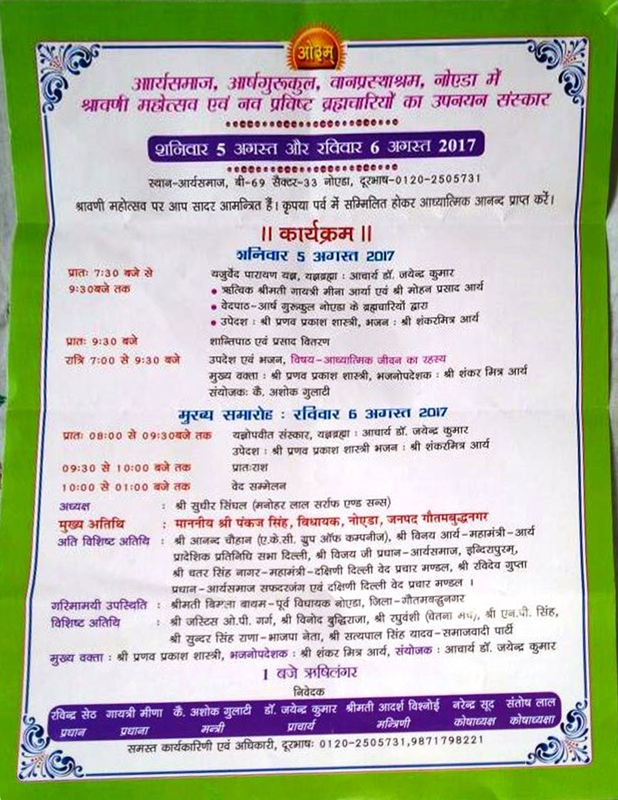 ओ३म्
आर्यसमाज, आर्षगुरूकुल, वानप्रस्थाश्रम, नोएडा में
श्रावणी महोत्सव एवं नव प्रविष्ट ब्रह्मचारियों का उपनयन संस्कार
शनिवार 5 अगस्त और रविवार 6 अगस्त 2017
स्थान-आर्यसमाज, बी-69 सैक्टर-33 नोएडा, दूरभाष-0120-2505731
श्रावणी महोत्सव पर आप सादर आमन्त्रित हैं। कृपया पर्व में सम्मिलित होकर आध्यात्मिक आनन्द प्राप्त करें।
॥ कार्यक्रम ॥
शनिवार 5 अगस्त 2017
प्रातः 7:30 बजे से यजुर्वेद पारायण यज्ञ, यज्ञब्रह्मा : आचार्य डॉ. जयेन्द्र कुमार
9:30बजे तक • ऋत्विक श्रीमती गायत्री मीना आर्या एवं श्री मोहन प्रसाद आर्य
• वेदपाठ-आर्ष गुरूकुल नोएडा के ब्रह्मचारियों द्वारा
• उपदेश : श्री प्रणव प्रकाश शास्त्री, भजन : श्री शंकरमित्र आर्य
प्रातः 9:30 बजे शान्तिपाठ एवं प्रसाद वितरण
रात्रि 7:00 से 9:30 बजे उपदेश एवं भजन, विषय-आध्यात्मिक जीवन का रहस्य
मुख्य वक्ता : श्री प्रणव प्रकाश शास्त्री, भजनोपदेशक : श्री शंकर मित्र आर्य
संयोजकः कै. अशोक गुलाटी
मुख्य समारोह : रविवार 6 अगस्त 2017
प्रातः 08:00 से 09:30बजे तक यज्ञोपवीत संस्कार, यज्ञब्रह्मा : आचार्य डॉ. जयेन्द्र कुमार
उपदेश : श्री प्रणव प्रकाश शास्त्री भजन : श्री शंकरमित्र आर्य
09:30 से 10:00 बजे तक प्रातःराश
10:00 से 01:00 बजे तक वेद सम्मेलन
अध्यक्ष : श्री सुधीर सिंघल (मनोहर लाल सर्राफ एण्ड सन्स)
मुख्य अतिथि : माननीय श्री पंकज सिंह, विधायक, नोएडा, जनपद गौतमबुद्धनगर
अति विशिष्ट अतिथि : श्री आनन्द चौहान (ए.के.सी. ग्रुप ऑफ कम्पनीज), श्री विनय आर्य-महामंत्री-आर्य
प्रादेशिक प्रतिनिधि सभा दिल्ली, श्री विजय जी प्रधान-आर्यसमाज, इन्दिरापुरम्,
श्री चतर सिंह नागर-महामंत्री-दक्षिणी दिल्ली वेद प्रचार मण्डल, श्री रविदेव गुप्ता
प्रधान-आर्यसमाज सफदरजंग एवं दक्षिणी दिल्ली वेद प्रचार मण्डल ।
गरिमामयी उपस्थिति : श्रीमती बिमला बाथम-पूर्व विधायक नोएडा, जिला-गौतमबुद्धनगर
विशिष्ट अतिथि : श्री जस्टिस ओ.पी. गर्ग, श्री विनोद बुद्धिराजा, श्री रघुवंशी (चेतना मंच), श्री एन.पी. सिंह,
श्री सुन्दर सिंह राणा-भाजपा नेता, श्री सत्यपाल सिंह यादव-समाजवादी पार्टी
मुख्य वक्ता : श्री प्रणव प्रकाश शास्त्री, भजनोपदेशक : श्री शंकर मित्र आर्य, संयोजक : आचार्य डॉ. जयेन्द्र कुमार
1 बजे ऋषिलंगर
निवेदक
रविन्द्र सेठ गायत्री मीणा कै. अशोक गुलाटी डॉ. जयेन्द्र कुमार श्रीमती आदर्श विश्नोई नरेन्द्र सूद संतोष लाल
प्रधान प्रधाना मन्त्री प्राचार्य मन्त्रिणी कोषाध्यक्ष कोषाध्यक्षा
समस्त कार्यकारिणी एवं अधिकारी, दूरभाषः 0120-2505731,9871798221